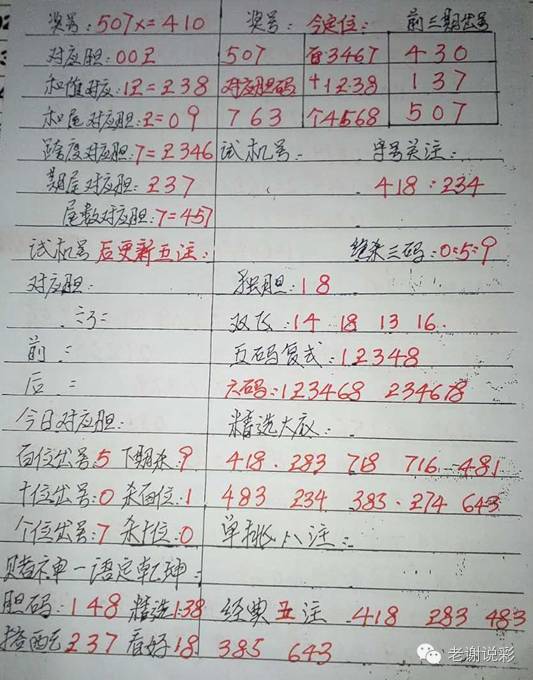 奖号:507x=410 奖号: 今定位: 前三期出号
对应胆:00Z 507 百3467 430
和值对应:12=238 对应胆码 十1238 137
和尾对应胆:2=09 763 个4568 507
跨度对应胆:7=2346 试机号: 守号关注:
期尾对应胆:237 418:234
尾数对应胆:7=457
试机号后更新五注: 绝杀三码:0:5:9
对应胆: 独胆:18
双飞:14 18 13 16
前: 五码复式:12348
后: 六码:123468 234678
今日对应胆: 精选大底:
百位出号:5 下期杀:9 418. 283 718 716 481
十位出号:0 杀百位:1 483 234 383. 274 643
个位出号:7 杀十位:0 单挑八注:
赌神一语定乾坤:
胆码:148 精选138 经典五注 418 283 483
搭配237 看好18 385 643
老谢说彩